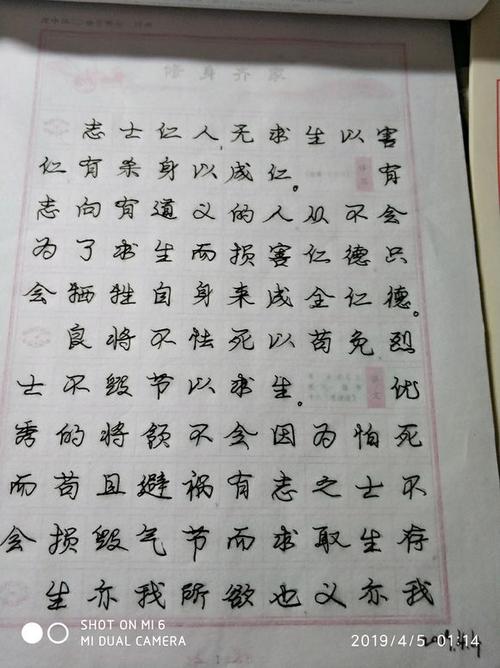 修身齐家
志士仁人,无求生以害
仁有杀身以成仁。有
志向有道义的人从不会
为了求生而损害仁德只
会牺牲自身来成全仁德。
良将不怯死以苟免烈
士不毁节以求生。优
秀的将领不会因为怕死
而苟且避祸有志之士不
会损毁气节而求取生存
生亦我所欲也义亦我
SHOT ON MI 6
MI DUAL CAMERA
2019/4/5 01:14